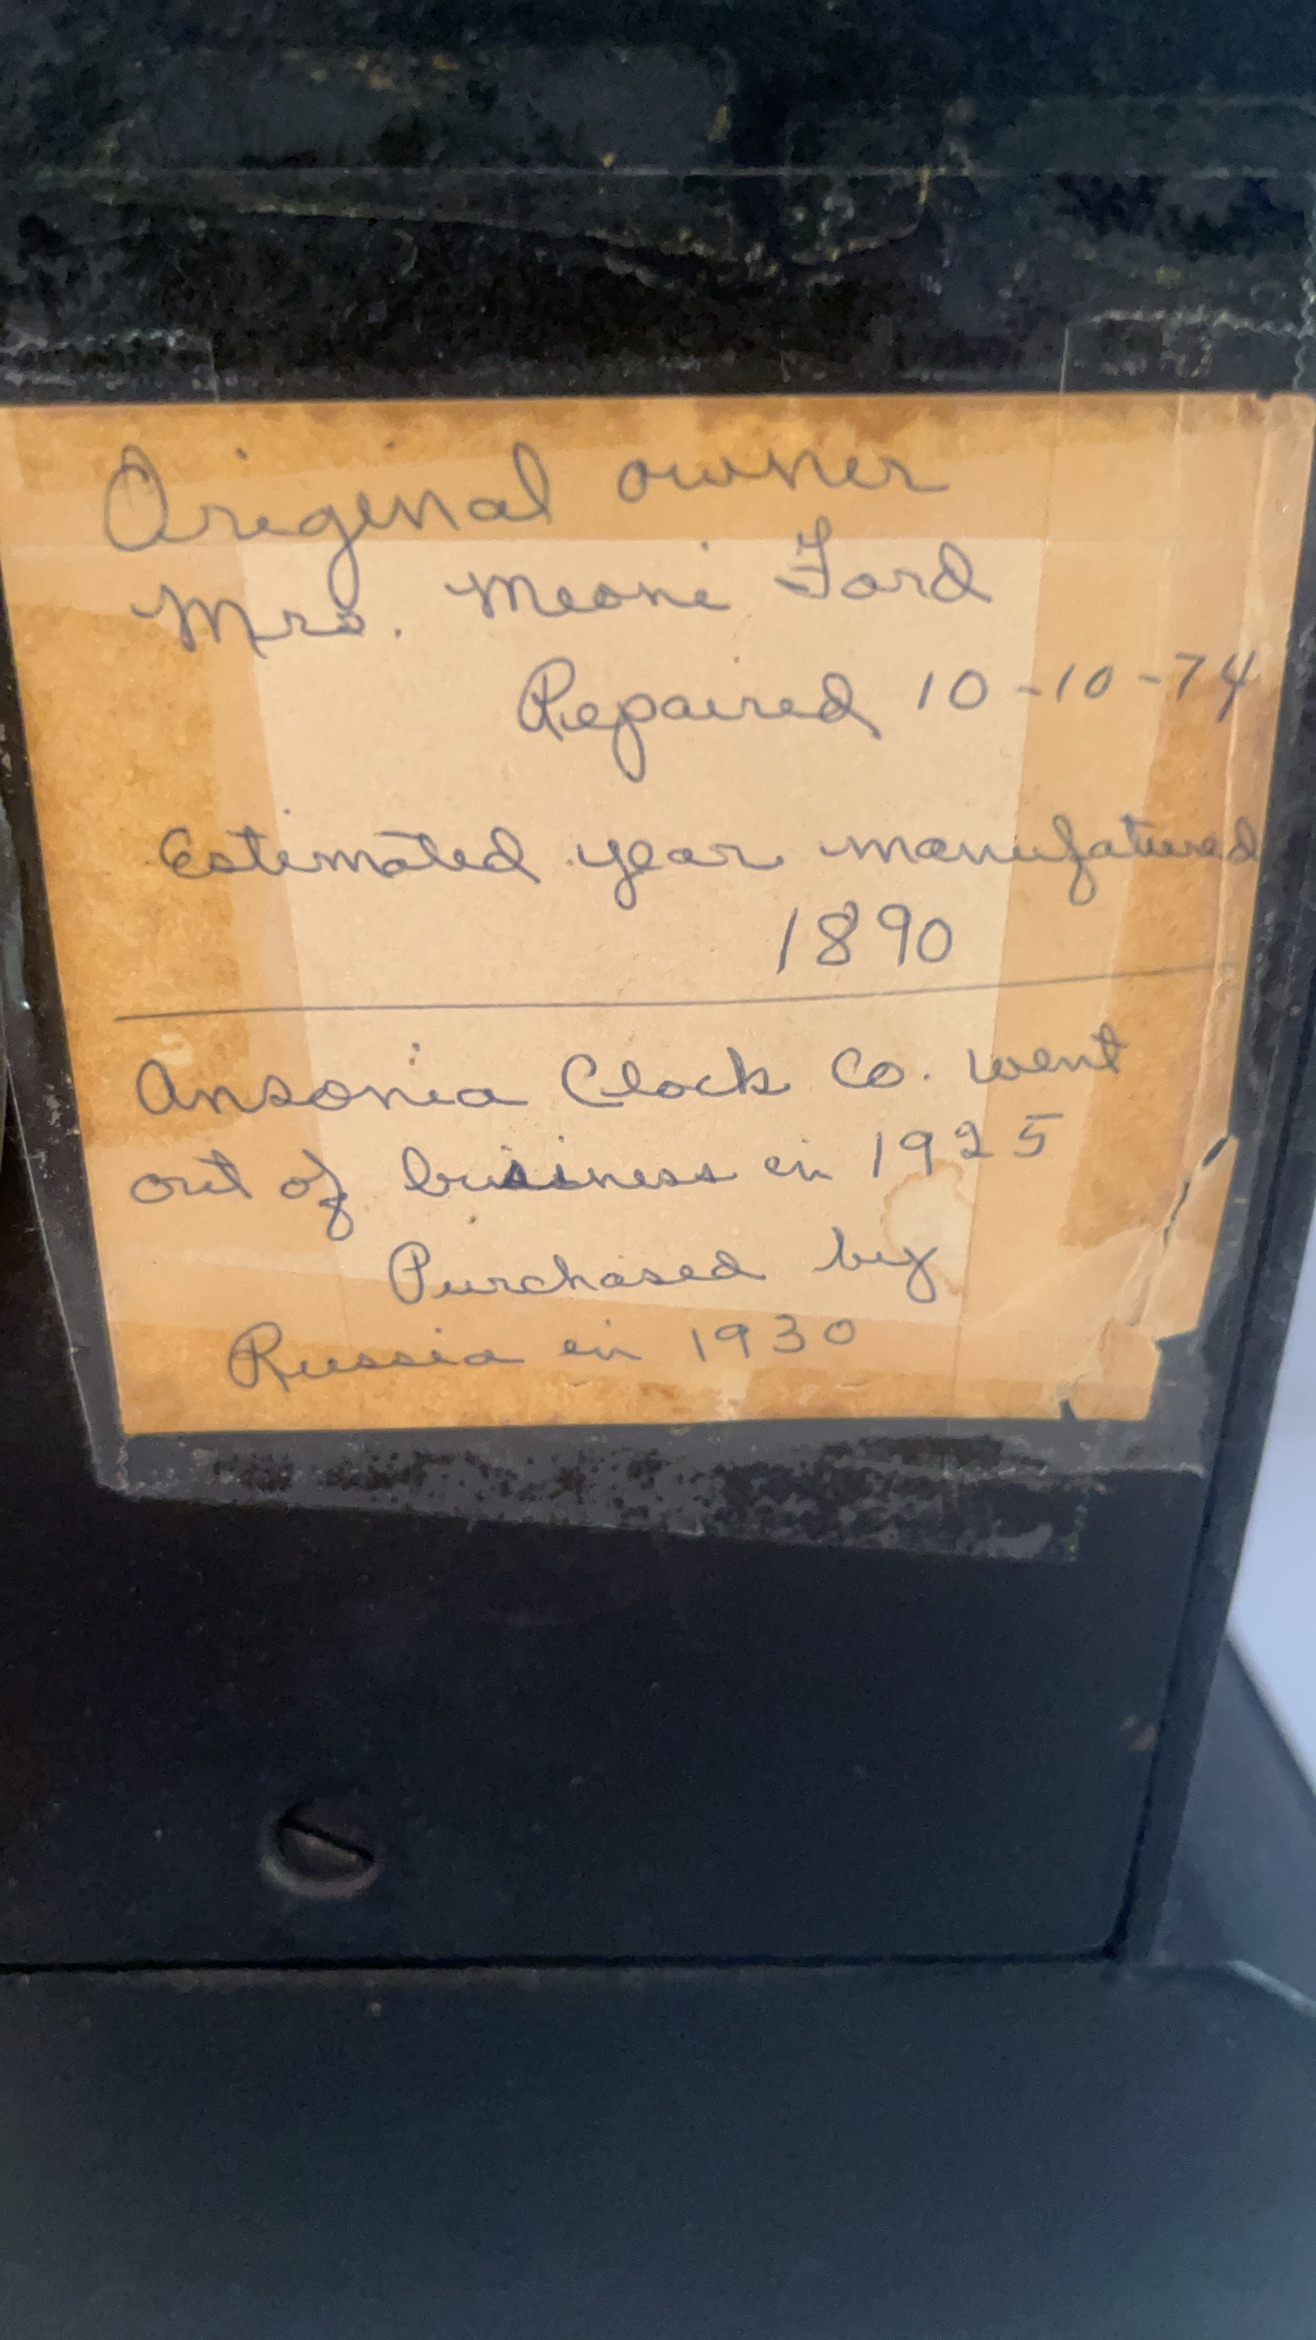 Original owner
Mrs. Meoni Ford
Repaired 10-10-74
Estimated year manufatured
1890
Ansonia Clock Co. went
out of business in 1925
Purchased by
Russia in 1930